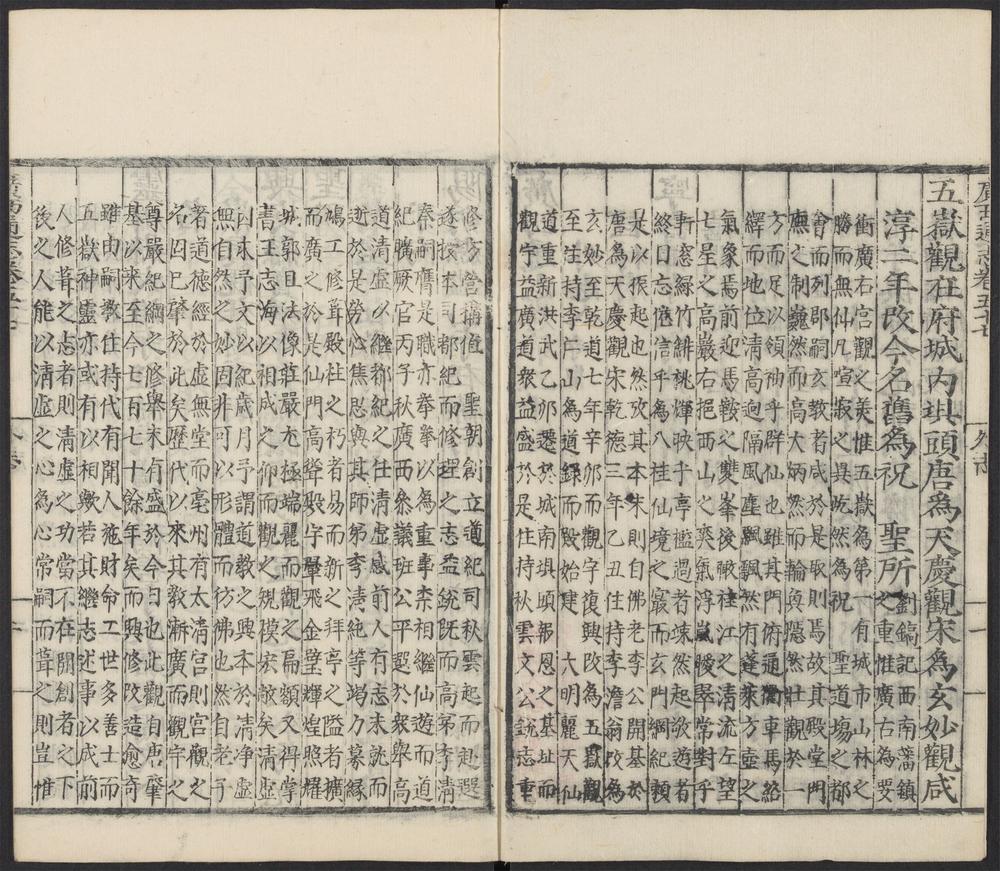 廣西通志卷五十七　外志　一
五嶽觀在府城內垻頭唐為天慶觀宋為玄妙觀咸
淳二年改今名舊為祝　聖所
劉鎬記西南藩鎮
之重惟廣右為要
衝廣右宫觀之美惟五嶽為第一有城市山林之
勝而無仙凡喧寂之異屹然為祝　聖道場之都
會而列郡嗣玄教者咸於是取則焉故其殿堂門
廡之制巍然而高大炳然而輪奐隱然壯觀於一
方而足以領袖乎群仙也雖其門俯通衢車馬絡
繹而地位清高逈隔風塵飄飄然有蓬萊方壺之
氣象焉前迎馬鞍之雙峯後瞰桂江之清流左望
七星之高巖右挹西山之爽氣浮嵐曖翠常對乎
軒窓緑竹緋桃輝映乎亭檻過者竦然起敬遊者
終日忘倦信乎為八桂仙境之最而玄門綱紀頼
是以振起也然攷其本朱則白佛老李公開基於
唐為天慶觀宋乾德三年乙丑住持李澹翁改為
玄妙至乾道七年辛卯而觀宇復興改為五嶽觀
至住持李仁山為道録而殿始建　大明麗天仙
道重新洪武乙卯遷於城南垻頭報恩之基址而
觀宇益廣道衆益盛於是住持秋雲文公鋭志重
修方營搆值　聖朝創立道紀司秋雲起而赴選
遂授本司都紀而修理之志益鋭既而高第李清
秦嗣膺是職亦拳拳以為重事柰相繼仙遊而道
紀曠厥官丙子秋廣西叅議班公平選於衆舉高
道清虚以繼都紀之任清虚感前人有志未就而
廼於是勞心焦思與其師弟李清純等竭力募緣
鳩工修葺殿柱之朽者易而新之拜亭之隘者擴
而廣之於是仙門高聳殿宇翬飛金壁輝煌照耀
城郭且法像莊嚴尢極端麗而觀之扁額又得掌
書王志海以相成之仰而觀之規模宏敞矣清虚
囙未予文以紀歲月予謂道教之興本於清净虚
無自然之妙固非可以形體而彷彿也然自老子
著道德經於虚無堂而亳州有太清宫則宫觀之
名囙巳肇於此矣歷代以來其教漸廣而觀宇之
尊嚴紀綱之修舉未有盛於今日也此觀自唐肇
基以來至今七百七十餘年矣而興修改造愈奇
雖由嗣教住持代有聞人施財命工世多善士而
五嶽神靈亦或有以相歟若其繼志述事以成前
人修葺之志者則清虚之功當不在闢創者之下
後之人能以清虚之心為心常嗣而葺之則豈惟